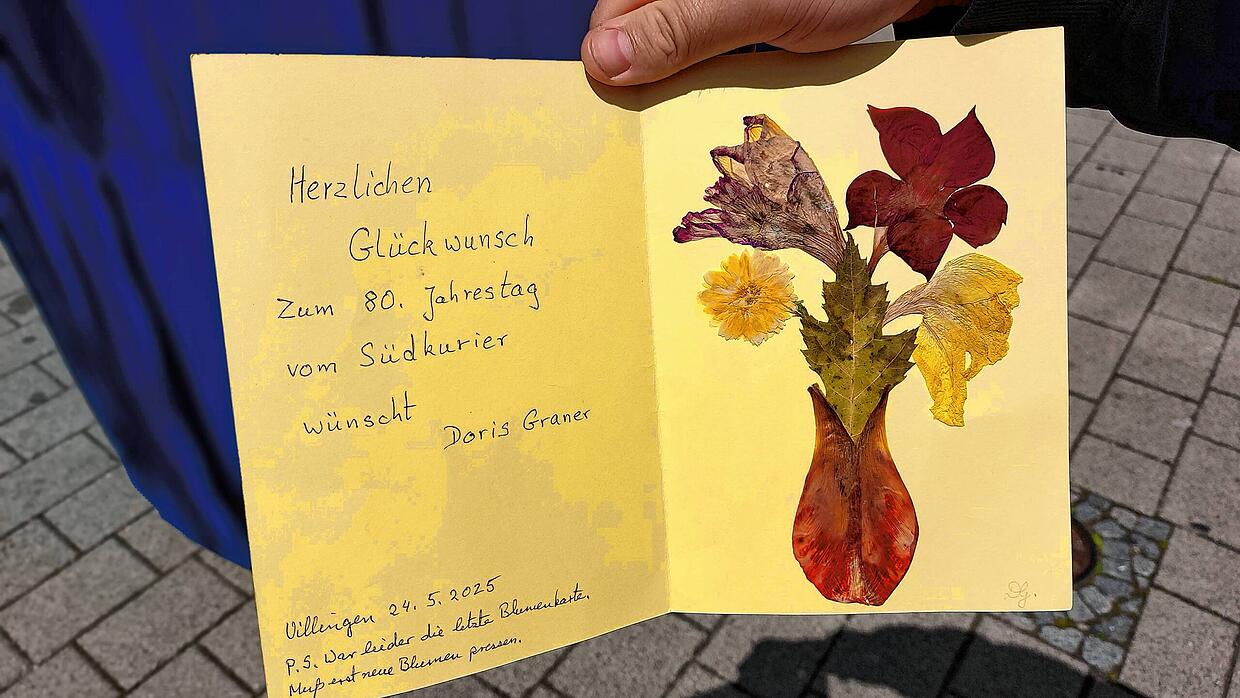 Herzlichen
Glückwunsch
Zum 80. Jahrestag
vom Südkurier
wünscht
Doris Graner
Villingen 24. 5. 2025
P.S. War leider die letzte Blumenkarte.
Muß erst neue Blumen pressen.
DG.